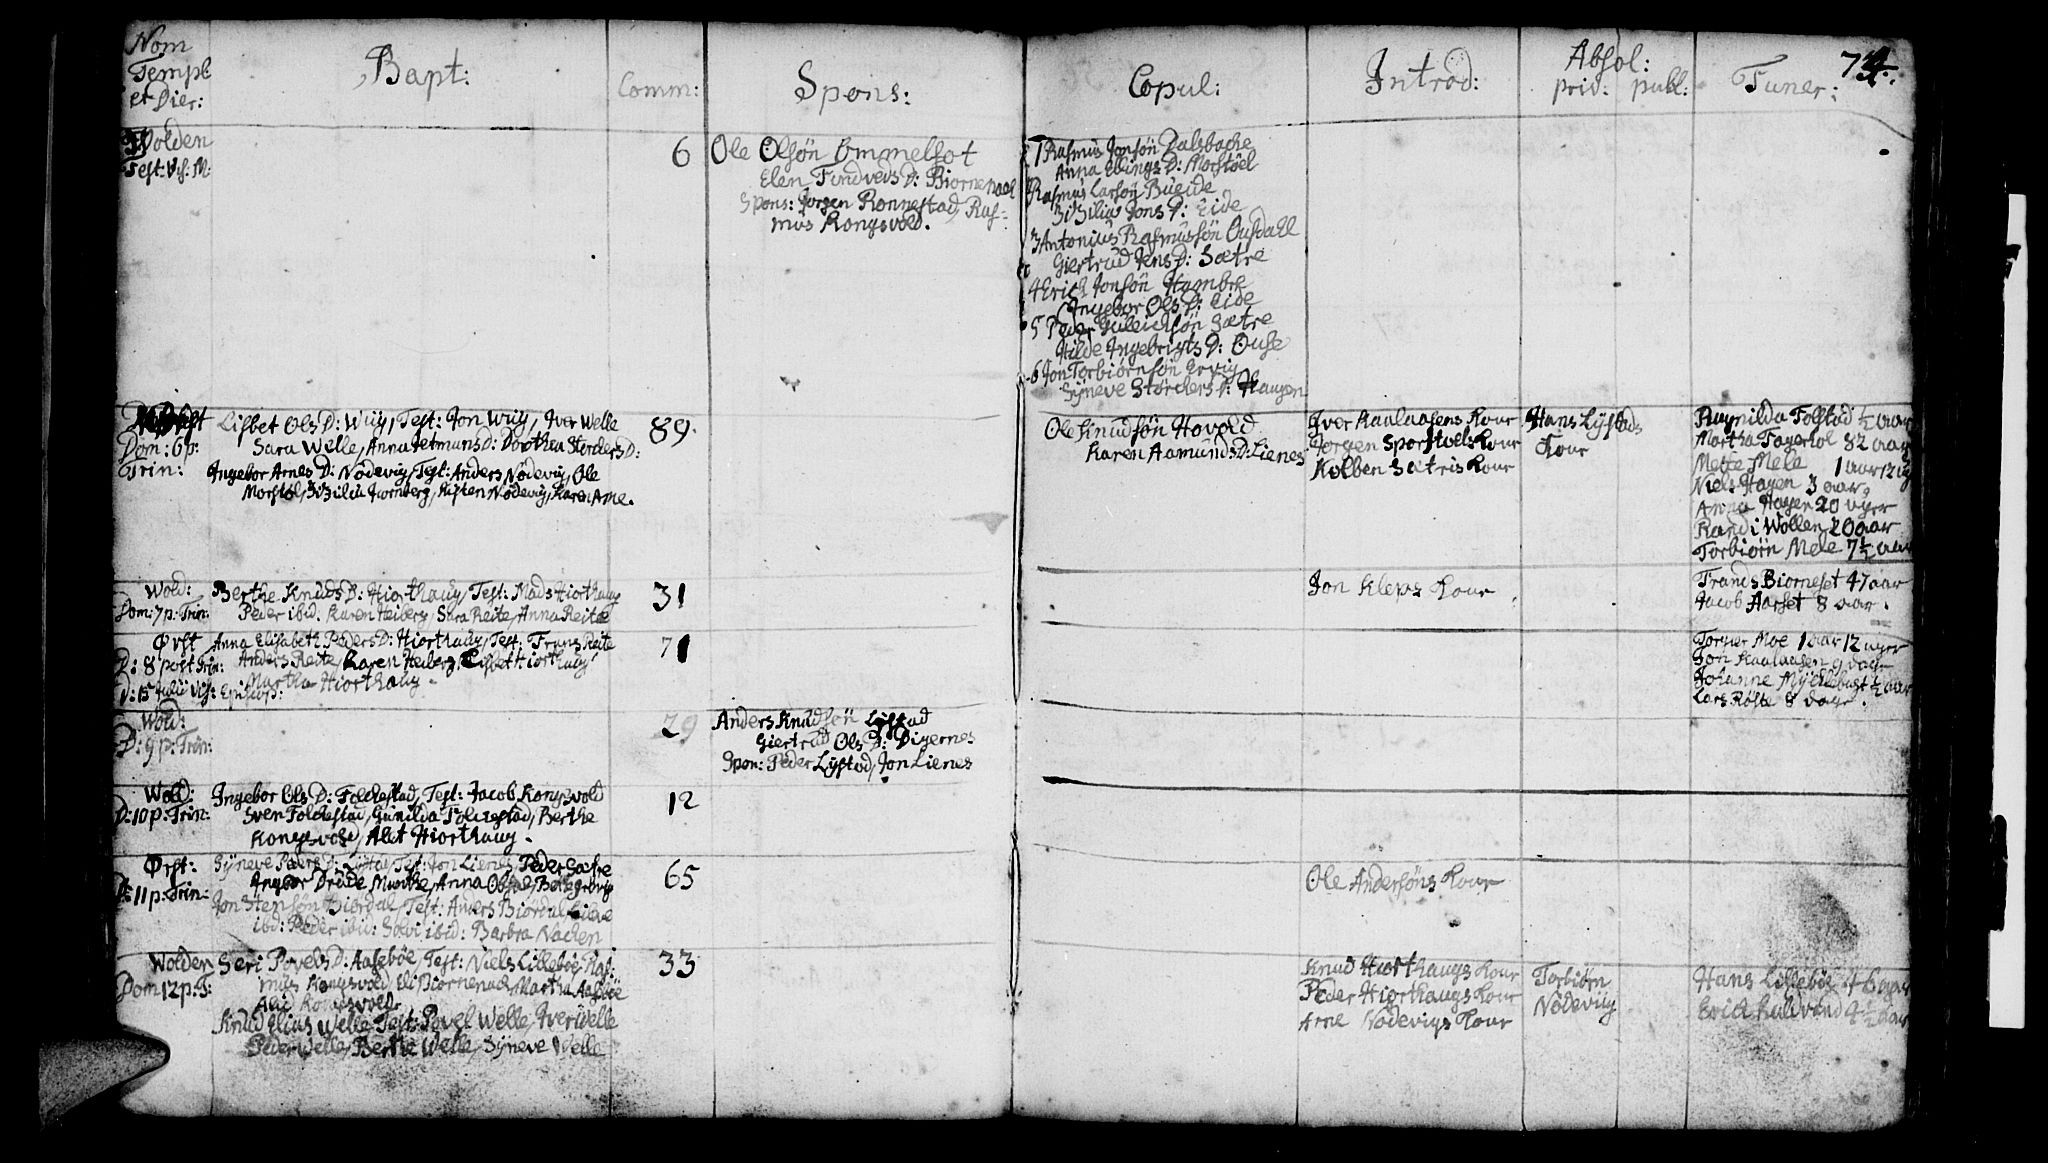 Nom
Templ
et Dier:
Bapt:
Comm:
Spons:
Copul:
Introd:
Absol:
priv: publ:
Funer:
74.
Wolden
Fest: Vis: M:
6
Ole Olsøn Emmelsot
Elen Findveds D: Biørnenack
Spons: Jørgen Rønnestad, Ras=
mus Kongsvold.
1 Rasmus Jonsøn Dalsbache
Anna Ellings D: Morstøel
Rasmus Larsøn Bueide
Zidsilius Jons D: Eide
3 Antonius Rasmussøn Ousdall
Giertrud Jens D: Sætre
4 Erich Jonsøn Hambre
Ingebor Ols D: Eide
5 Peder Guleichsøn Sætre
Hilde Ingebrigts D: Ouse
6 Jon Torbiørnsøn Ervig
Syneve Størders D: Haugen
Ørst
Dom: 6 p:
Trin:
Lisbet Ols D: Wiig, Test: Jon Wiig, Iver Welle
Sara Welle, Anna Jetmunds D: Dorthea Størders D:
Ingebor Arnes D: Nødevig, Test: Anders Nødevig, Ole
Morstøl, Zidsilia Kornberg, Kisten Nødevig, Karen Arne.
89.
Ole Knudsøn Hovold
Karen Aamunds D: Lienes
Iver Kaalaasens Kone
Jørgen Sporstøels Kone
Kolben Sætris Kone
Hans Lystads
Kone
Ragnilda Folstad ½ aar
Martha Fagerhol 82 aar
Mette Mele 1 aar 12 ug
Niels Hagen 3 aar,
Anna Hagen 20 uger
Randi Wollen 20 aar
Torbiørn Mele 7½ aar
Wold:
Dom: 7 p: Trin:
Berthe Knuds D: Hiorthaug, Test: Mads Hiorthaug
Peder ibid. Karen Heiberg, Sara Reite, Anna Reite
31
Jon Kleps Kone
Frands Biørneset 47 aar
Jacob Aarset 8 aar.
Ørst
D: 8 post Trin:
D: 15 Julii Vis: Episcop:
Anna Elisabeth Peders D: Hiorthaug, Test: Frans Reite
Anders Reite, Karen Heiberg, Lisbet Hiorthaug
Martha Hiorthaug.
71
Torger Moe 1 aar 12 uger
Jon Kaalaasen 9 dage
Johanne Mychlebust ½ aar
Lars Røste 8 dage.
Wold:
D: 9 p: Trin:
29
Anders Knudsøn Lystad
Giertrud Ols D: Digernes
Spon: Peder Lystad, Jon Lienes
Wold:
D: 10 p: Trin:
Ingebor Ols D: Folchestad, Test: Jacob Kongsvold
Sven Folchestad, Gunilda Folchestad, Berthe
Kongsvold, Alet Hiorthaug.
12
Ørst:
D: 11 p: Trin:
Syneve Peders D: Lystad, Test: Jon Lienes, Peder Sætre
Ingebor Drude Marthe, Anna
Jon Stensøn Biørdal, Test: Anders Biørdal
ibd: Peder ibid: Solvi ibid: Barbra Nachen
65
Ole Andersøns Kone
Wolden
Dom 12 p: T:
Seri Povels D: Aasebøe Test: Niels Lillebøe, Ras:
mus Kongsvold, Eli Biørnenack, Martha Aasebøe
Alit Kongsvold
Knud Elius Welle, Test: Povel Welle, Iver Welle
Peder Welle, Berthe Welle, Syneve Welle
33
Knud Hiorthaugs Kone
Peder Hiorthaugs Kone
Arne Nødevigs Kone
Torbiørn
Nødeviig
Hans Lillebøe 46 aar
Erich Kuldvand 4½ aar